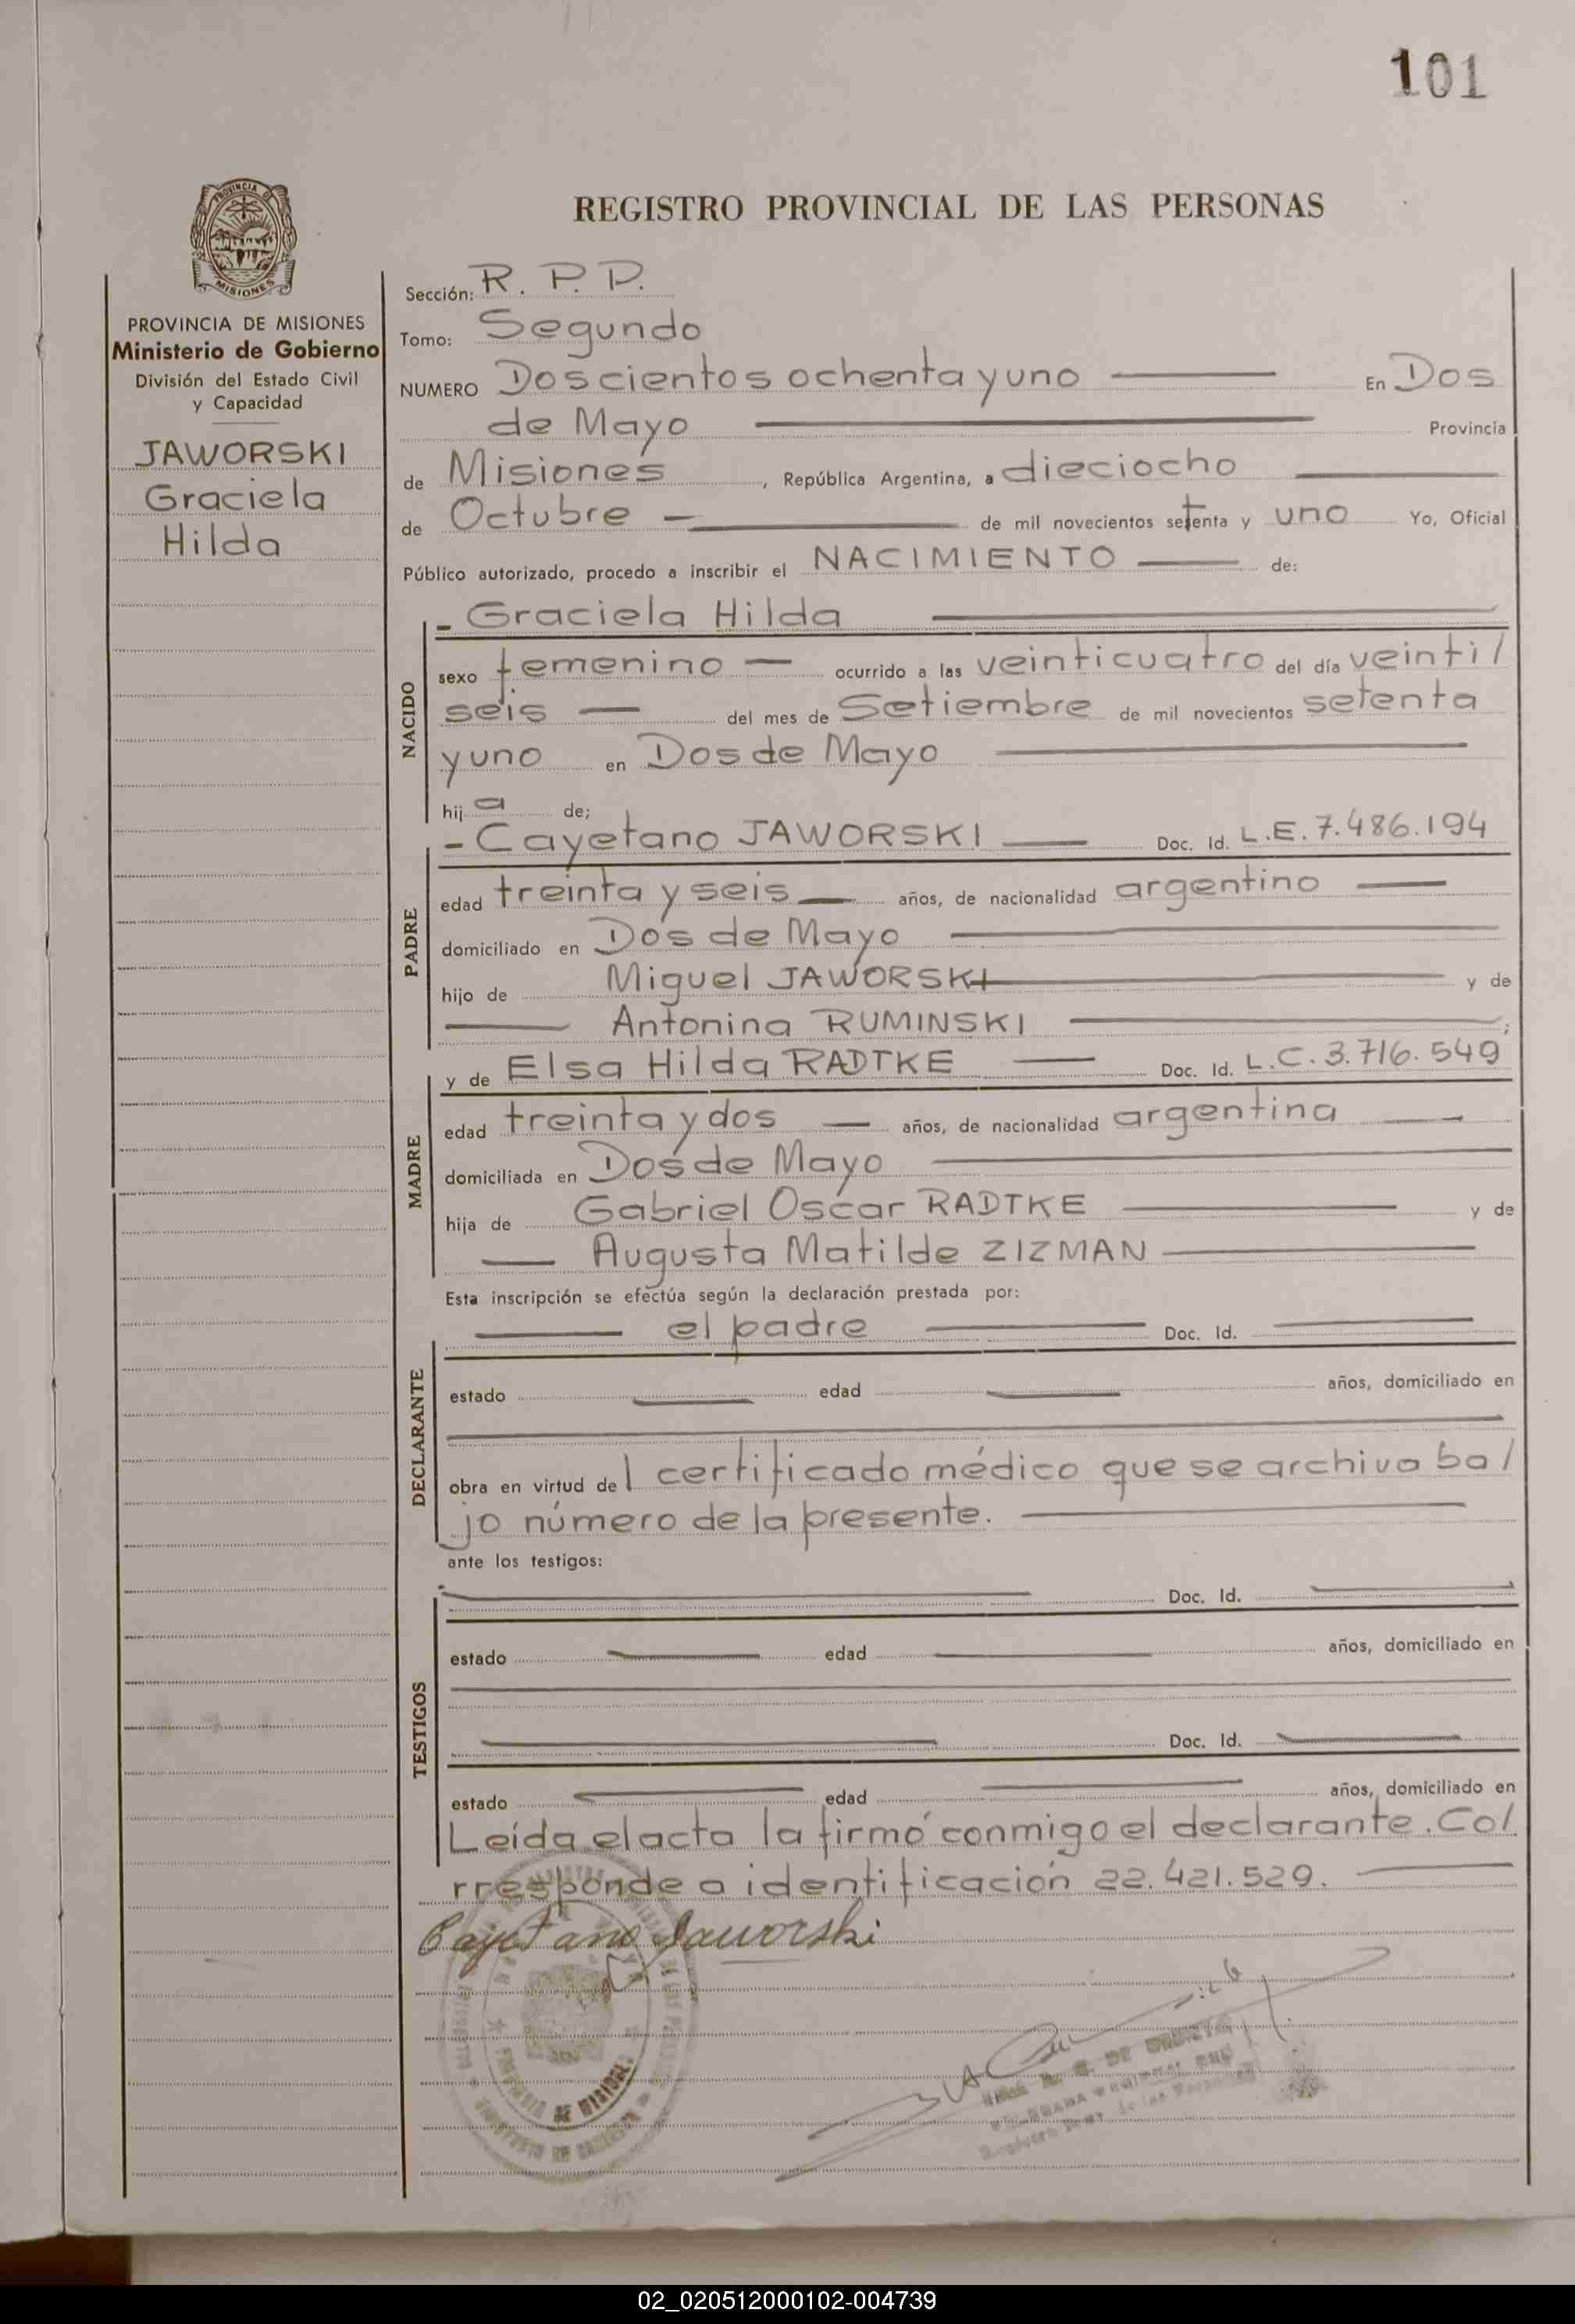 101
REGISTRO PROVINCIAL DE LAS PERSONAS
PROVINCIA DE MISIONES
PROVINCIA DE MISIONES
Ministerio de Gobierno
División del Estado Civil
y Capacidad
JAWORSKI
Graciela
Hilda
Sección: R. P. P.
Tomo: Segundo
NUMERO Doscientos ochenta y uno En Dos
de Mayo Provincia
de Misiones, República Argentina, a dieciocho
de Octubre de mil novecientos setenta y uno Yo, Oficial
Público autorizado, procedo a inscribir el NACIMIENTO de:
NACIDO
- Graciela Hilda
sexo femenino ocurrido a las veinticuatro del día veinti/
seis del mes de Setiembre de mil novecientos setenta
y uno en Dos de Mayo
hij a de;
PADRE
- Cayetano JAWORSKI Doc. Id. L.E. 7.486.194
edad treinta y seis años, de nacionalidad argentino
domiciliado en Dos de Mayo
hijo de Miguel JAWORSKI y de
Antonina RUMINSKI ;
MADRE
y de Elsa Hilda RADTKE Doc. Id. L.C. 3.716.549
edad treinta y dos años, de nacionalidad argentina
domiciliada en Dos de Mayo
hija de Gabriel Oscar RADTKE y de
Augusta Matilde ZIZMAN
Esta inscripción se efectúa según la declaración prestada por:
DECLARANTE
el padre Doc. Id.
estado edad años, domiciliado en
obra en virtud de l certificado médico que se archiva ba/
jo número de la presente.
ante los testigos:
TESTIGOS
Doc. Id.
estado edad años, domiciliado en
Doc. Id.
estado edad años, domiciliado en
Leída el acta la firmó conmigo el declarante. Co/
rresponde a identificación 22.421.529.
Cayetano Jaworski
DE MISIONES
02_020512000102-004739